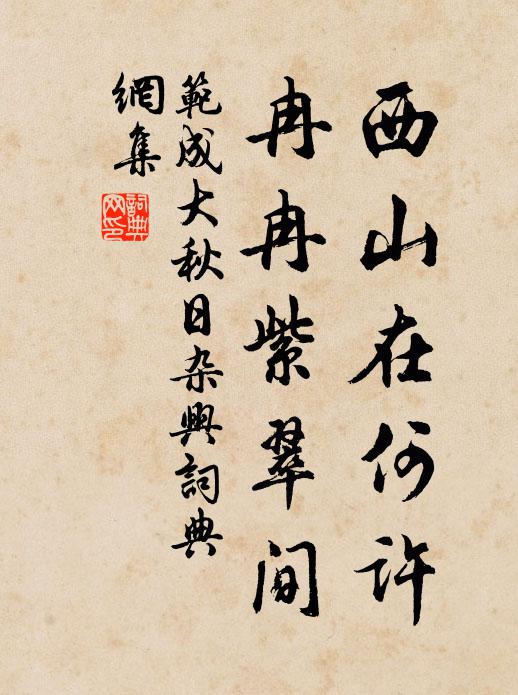 西山在何许
冉冉紫翠间
範成大秋日杂興詞典
網集
詞典
网印